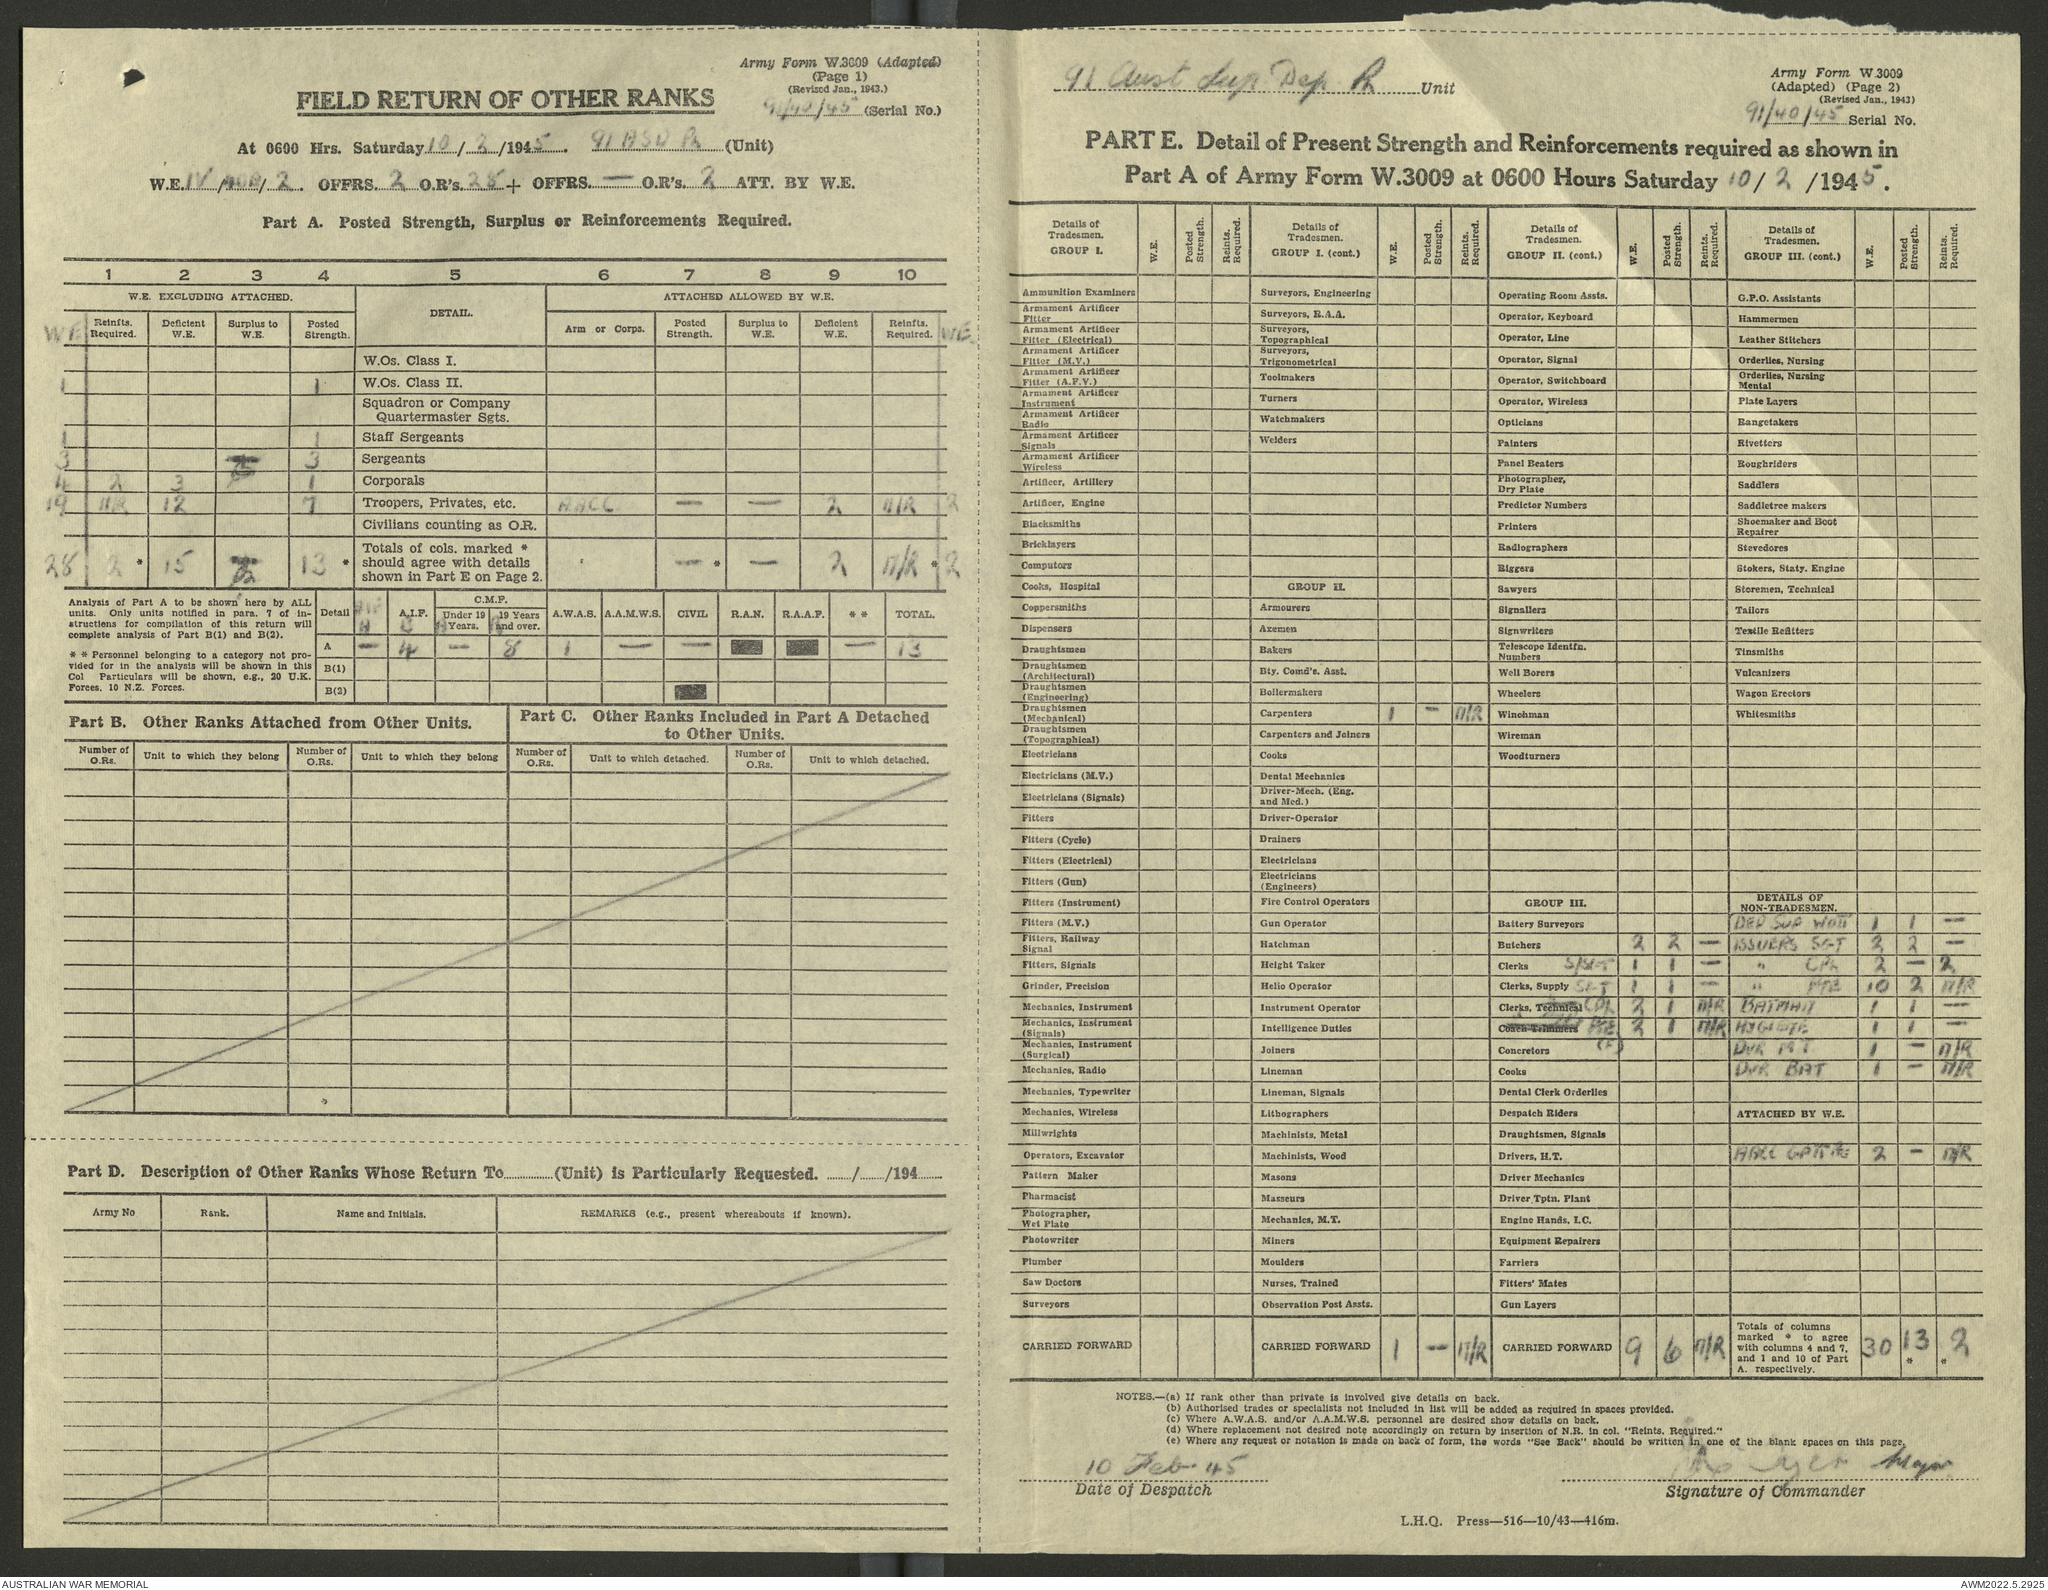 Army Form W.3009 (Adapted)
(Page 1)
(Revised Jan., 1943.)
FIELD RETURN OF OTHER RANKS
91/40/45 (Serial No.)
At 0600 Hrs. Saturday 10/2/1945. 91 ASD Pl (Unit)
W.E. IV/ /2. OFFRS. 2 O.R's. 28 + OFFRS. — O.R's. 2 ATT. BY W.E.
Part A. Posted Strength, Surplus or Reinforcements Required.
1 2 3 4 5 6 7 8 9 10
W.E. EXCLUDING ATTACHED. DETAIL. ATTACHED ALLOWED BY W.E.
WE Reinfts. Required. Deficient W.E. Surplus to W.E. Posted Strength. Arm or Corps. Posted Strength. Surplus to W.E. Deficient W.E. Reinfts. Required. WE
W.Os. Class I.
1 1 W.Os. Class II.
Squadron or Company Quartermaster Sgts.
1 1 Staff Sergeants
3 3 Sergeants
4 2 3 1 Corporals
19 N/R 12 7 Troopers, Privates, etc. AACC — — 2 N/R 2
Civilians counting as O.R.
28 2 * 15 13 * Totals of cols. marked * should agree with details shown in Part E on Page 2. — * — 2 N/R * 2
Analysis of Part A to be shown here by ALL units. Only units notified in para. 7 of instructions for compilation of this return will complete analysis of Part B(1) and B(2).
* * Personnel belonging to a category not provided for in the analysis will be shown in this Col Particulars will be shown, e.g., 20 U.K. Forces, 10 N.Z. Forces.
Detail A.I.F. C.M.F. Under 19 Years. 19 Years and over. A.W.A.S. A.A.M.W.S. CIVIL R.A.N. R.A.A.F. * * TOTAL.
A — 4 — 8 1 — — — 13
B(1)
B(2)
Part B. Other Ranks Attached from Other Units.
Part C. Other Ranks Included in Part A Detached to Other Units.
Number of O.Rs. Unit to which they belong Number of O.Rs. Unit to which they belong Number of O.Rs. Unit to which detached. Number of O.Rs. Unit to which detached.
Part D. Description of Other Ranks Whose Return To (Unit) is Particularly Requested. / /194
Army No Rank. Name and Initials. REMARKS (e.g., present whereabouts if known).
91 Aust Sup Dep Pl Unit
Army Form W.3009
(Adapted) (Page 2)
(Revised Jan., 1943)
91/40/45 Serial No.
PART E. Detail of Present Strength and Reinforcements required as shown in
Part A of Army Form W.3009 at 0600 Hours Saturday 10/2/1945.
Details of Tradesmen. GROUP I. W.E. Posted Strength. Reints. Required.
Ammunition Examiners
Armament Artificer Fitter
Armament Artificer Fitter (Electrical)
Armament Artificer Fitter (M.V.)
Armament Artificer Fitter (A.F.V.)
Armament Artificer Instrument
Armament Artificer Radio
Armament Artificer Signals
Armament Artificer Wireless
Artificer, Artillery
Artificer, Engine
Blacksmiths
Bricklayers
Computors
Cooks, Hospital
Coppersmiths
Dispensers
Draughtsmen
Draughtsmen (Architectural)
Draughtsmen (Engineering)
Draughtsmen (Mechanical)
Draughtsmen (Topographical)
Electricians
Electricians (M.V.)
Electricians (Signals)
Fitters
Fitters (Cycle)
Fitters (Electrical)
Fitters (Gun)
Fitters (Instrument)
Fitters (M.V.)
Fitters, Railway Signal
Fitters, Signals
Grinder, Precision
Mechanics, Instrument
Mechanics, Instrument (Signals)
Mechanics, Instrument (Surgical)
Mechanics, Radio
Mechanics, Typewriter
Mechanics, Wireless
Millwrights
Operators, Excavator
Pattern Maker
Pharmacist
Photographer, Wet Plate
Photowriter
Plumber
Saw Doctors
Surveyors
CARRIED FORWARD
Details of Tradesmen. GROUP I. (cont.) W.E. Posted Strength. Reints. Required.
Surveyors, Engineering
Surveyors, R.A.A.
Surveyors, Topographical
Surveyors, Trigonometrical
Toolmakers
Turners
Watchmakers
Welders
GROUP II.
Armourers
Axemen
Bakers
Bty. Comd's. Asst.
Boilermakers
Carpenters 1 — N/R
Carpenters and Joiners
Cooks
Dental Mechanics
Driver-Mech. (Eng. and Med.)
Driver-Operator
Drainers
Electricians
Electricians (Engineers)
Fire Control Operators
Gun Operator
Hatchman
Height Taker
Helio Operator
Instrument Operator
Intelligence Duties
Joiners
Lineman
Lineman, Signals
Lithographers
Machinists, Metal
Machinists, Wood
Masons
Masseurs
Mechanics, M.T.
Miners
Moulders
Nurses, Trained
Observation Post Assts.
CARRIED FORWARD 1 — N/R
Details of Tradesmen. GROUP II. (cont.) W.E. Posted Strength. Reints. Required.
Operating Room Assts.
Operator, Keyboard
Operator, Line
Operator, Signal
Operator, Switchboard
Operator, Wireless
Opticians
Painters
Panel Beaters
Photographer, Dry Plate
Predictor Numbers
Printers
Radiographers
Riggers
Sawyers
Signallers
Signwriters
Telescope Identfn. Numbers
Well Borers
Wheelers
Winchman
Wireman
Woodturners
GROUP III.
Battery Surveyors
Butchers 2 2 —
Clerks S/SGT 1 1 —
Clerks, Supply SGT 1 1 —
Clerks, Technical CPL 2 1 N/R
Coach Trimmers PTE 2 1 N/R
(F)
Concretors
Cooks
Dental Clerk Orderlies
Despatch Riders
Draughtsmen, Signals
Drivers, H.T.
Driver Mechanics
Driver Tptn. Plant
Engine Hands, I.C.
Equipment Repairers
Farriers
Fitters' Mates
Gun Layers
CARRIED FORWARD 9 6 N/R
Details of Tradesmen. GROUP III. (cont.) W.E. Posted Strength. Reints. Required.
G.P.O. Assistants
Hammermen
Leather Stitchers
Orderlies, Nursing
Orderlies, Nursing Mental
Plate Layers
Rangetakers
Rivetters
Roughriders
Saddlers
Saddletree makers
Shoemaker and Boot Repairer
Stevedores
Stokers, Staty. Engine
Storemen, Technical
Tailors
Textile Refitters
Tinsmiths
Vulcanizers
Wagon Erectors
Whitesmiths
DETAILS OF NON-TRADESMEN.
DEP SUP WOII 1 1 —
ISSUERS SGT 2 2 —
" CPL 2 — 2
" PTE 10 2 N/R
BATMAN 1 1 —
HYGIENE 1 1 —
DVR MT 1 — N/R
DVR BAT 1 — N/R
ATTACHED BY W.E.
AACC 2 — N/R
Totals of columns marked * to agree with columns 4 and 7, and 1 and 10 of Part A. respectively. 30 13 * * 2
NOTES.—(a) If rank other than private is involved give details on back.
(b) Authorised trades or specialists not included in list will be added as required in spaces provided.
(c) Where A.W.A.S. and/or A.A.M.W.S. personnel are desired show details on back.
(d) Where replacement not desired note accordingly on return by insertion of N.R. in col. "Reints. Required."
(e) Where any request or notation is made on back of form, the words "See Back" should be written in one of the blank spaces on this page.
10 Feb 45
Date of Despatch
Major
Signature of Commander
L.H.Q. Press—516—10/43—416m.
AUSTRALIAN WAR MEMORIAL
AWM2022.5.2925